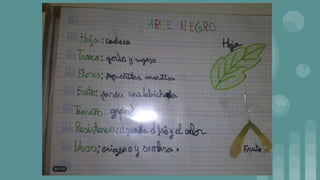 ARCE NEGRO
Hoja: caduca
Hoja
Tronco: gordo y rugoso
Flores: pequeñitas amarillas
Fruto: parece una labichuela
Tamaño: grande
Resistencia: aguanta el frío y el calor
Usos: oxígeno y sombra.
Fruto